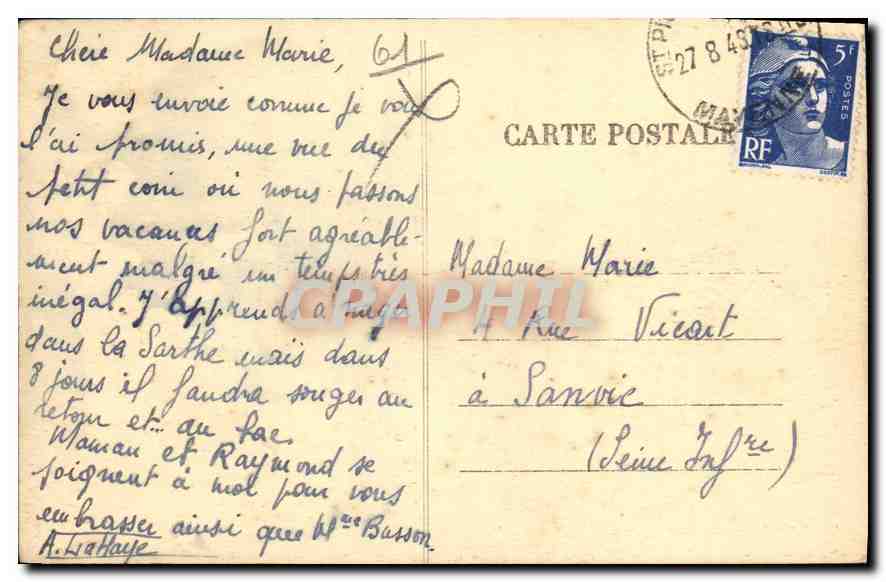 Chère Madame Marie, 61
Je vous envoie comme je vous
l'ai promis, une vue du
petit coin où nous passons
nos vacances fort agréable-
ment malgré un temps très
inégal. J'apprends à nager
dans la Sarthe mais dans
8 jours il faudra songer au
retour et... au bac.
Maman et Raymond se
joignent à moi pour vous
embrasser ainsi que Mme Busson.
A. LaHaye
CARTE POSTALE
27 8 48
MAYENNE
5F
POSTES
RF
Madame Marie
4 Rue Vicart
à Sanvic
(Seine Infre)
CPAPHIL